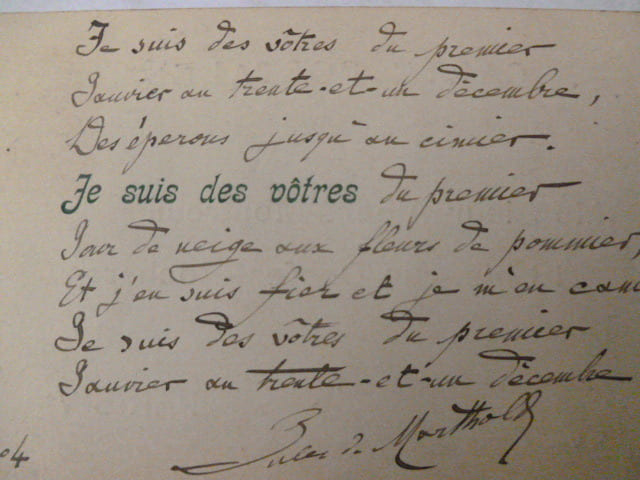 Je suis des vôtres du premier
Janvier au trente-et-un décembre,
Des éperons jusqu'au cimier.
Je suis des vôtres du premier
Jour de neige aux fleurs de pommier,
Et j'en suis fier et je m'en cam
Je suis des vôtres du premier
Janvier au trente-et-un décembre
Jules de Marthold
04